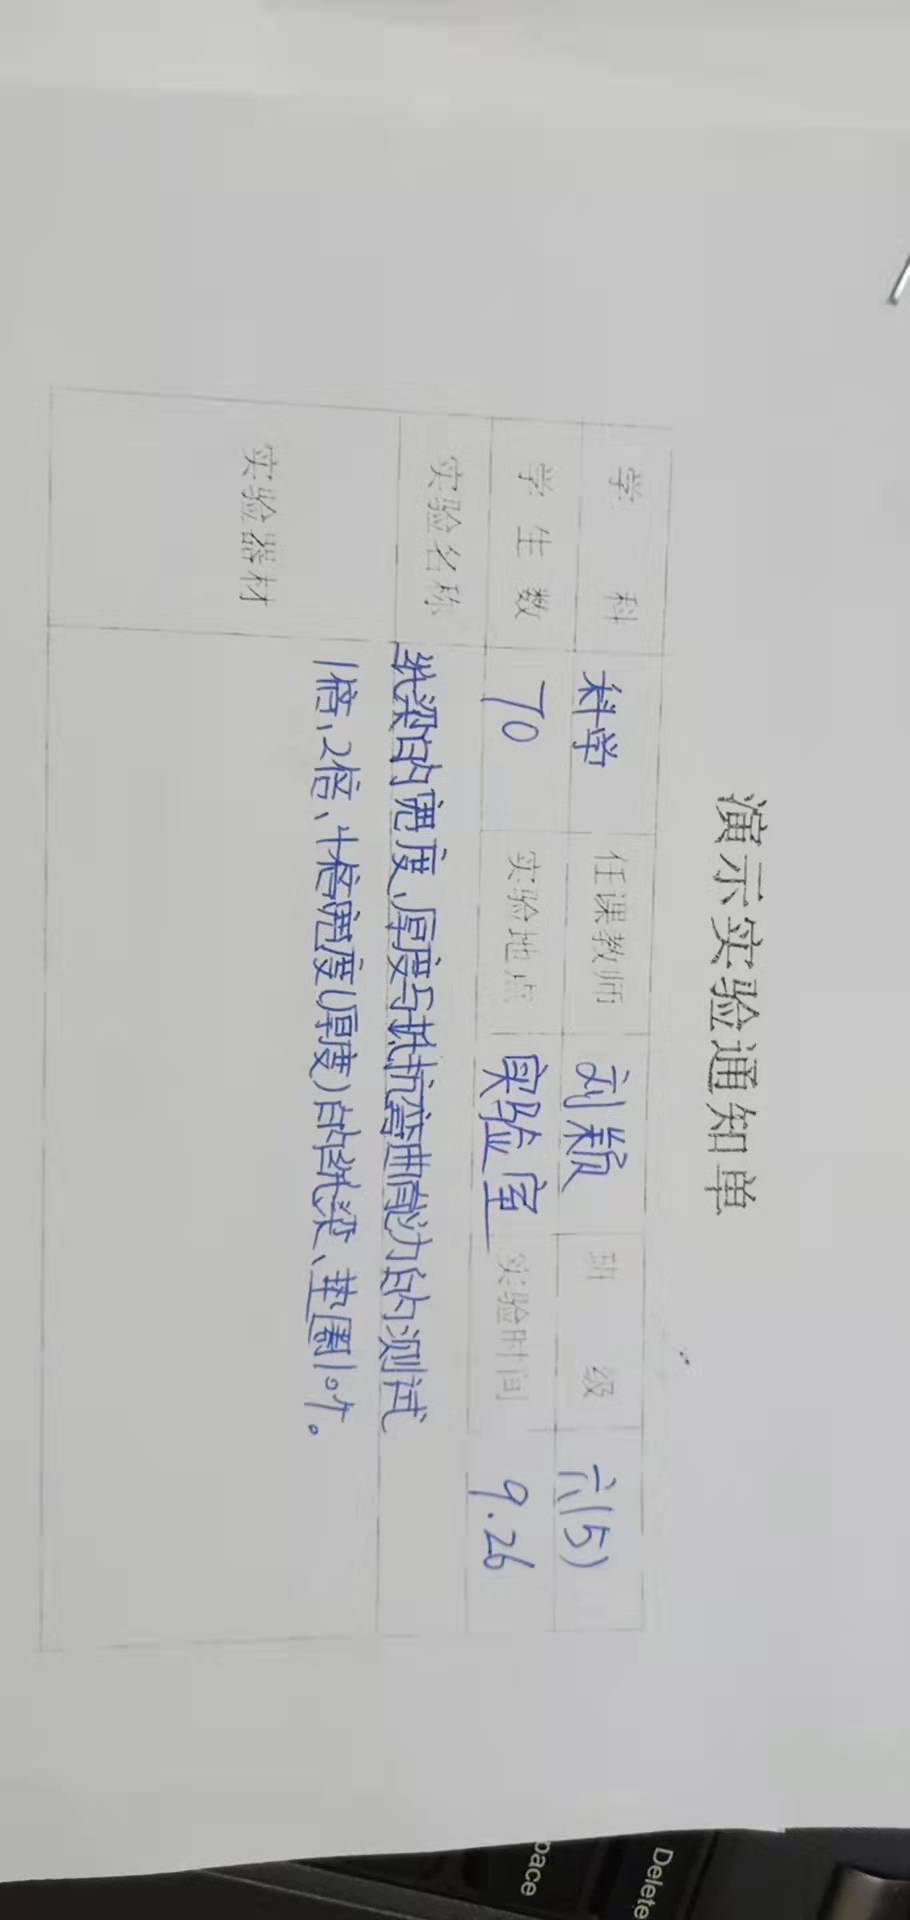 演示实验通知单
学 科 科学 任课教师 刘颖 班 级 六(5)
学生数 70 实验地点 实验室 实验时间 9.26
实验名称 纸梁的宽度、厚度与抵抗弯曲能力的测试
实验器材 1倍、2倍、4倍宽度(厚度)的纸梁、垫圈10个。
Delete
pace